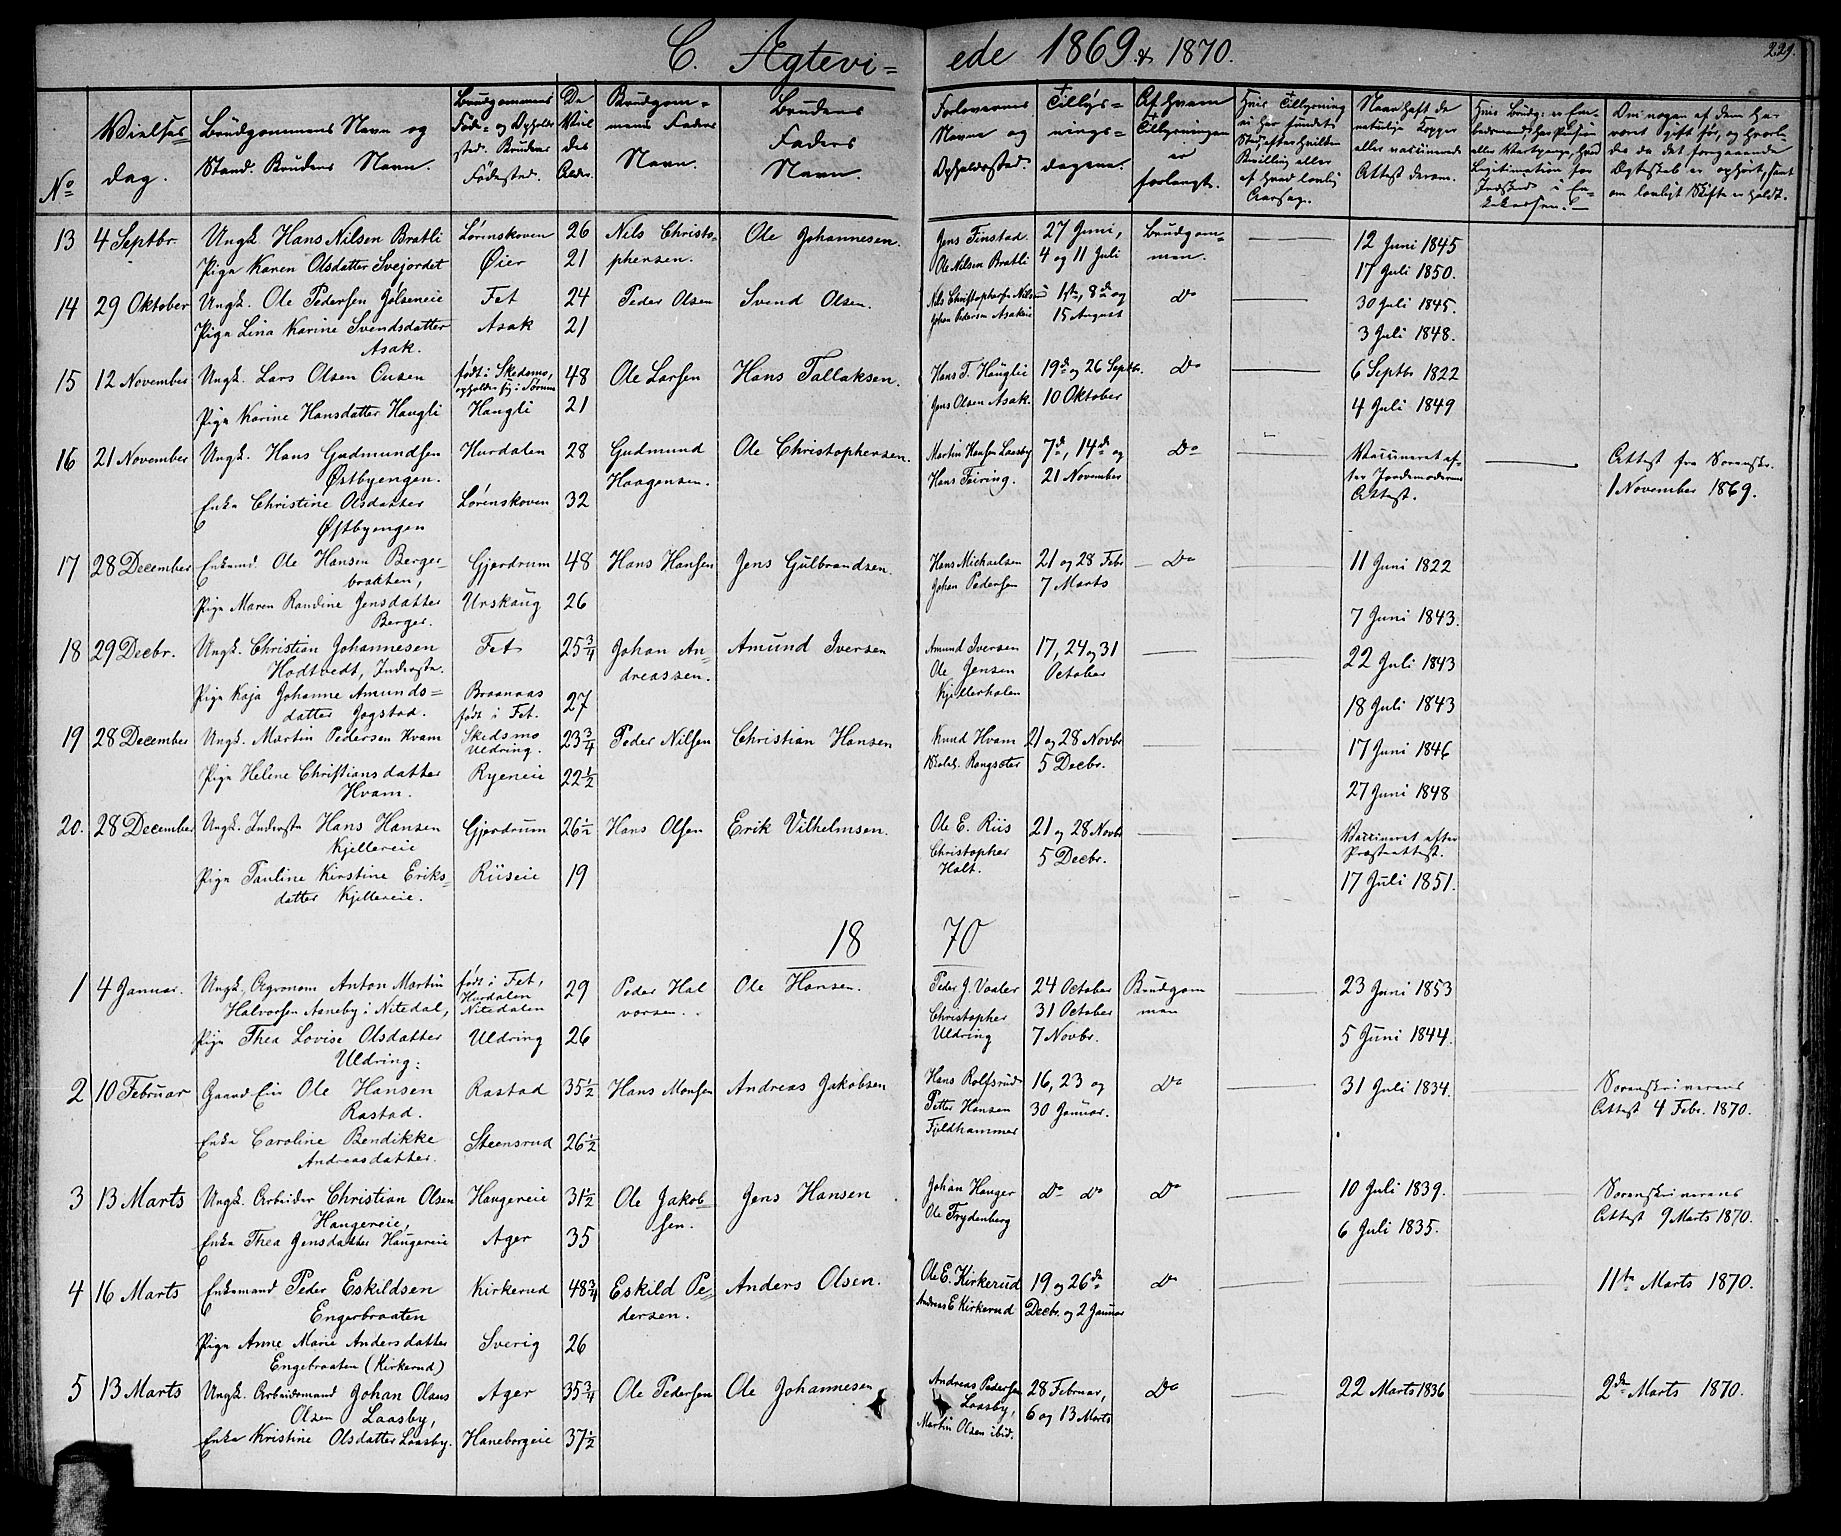 C. Ægtevi= ede 1869 & 1870. 229.
No
Vielses=
dag.
Brudgommens Navn og
Stand. Brudens Navn.
Brudgommens
Føde= og Opholds
sted. Brudens
Fødested.
De
Viel
des
Alder.
Brudgom=
mens Faders
Navn.
Brudens
Faders
Navn.
Forlovernes
Navne og
Opholdssted.
Tillys=
nings=
dagene.
Af hvem
Tillysningen
er
forlangt.
Hvis Tillysning
ei har fundet
Sted, efter hvilken
Bevilling eller
af hvad lovlig
Aarsag.
Naar haft de
naturlige Kopper
eller vaccinerede
Attest derom.
Om nogen af dem har
været gift før, og hvorle
des da det foregaaende
Ægteskab er ophørt, samt
om lovligt Skifte er holdt.
13 4 Septbr. Ungk Hans Nilsen Bratli Lørenskoven 26 Nils Christo= Ole Johannesen. Jens Finstad. 27 Juni, Brudgom= 12 Juni 1845
Pige Karen Olsdatter Svejordet Øier 21 phersen. Ole Nilsen Bratli 4 og 11 Juli man. 17 Juli 1850.
14 29 Oktober Ungk. Ole Pedersen Jølseneie Fet 24 Peder Olsen Svend Olsen. Nils Christophersen 1ste, 8de og Do 30 Juli 1845.
Pige Lina Karine Svendsdatter Asak 21 Johan Pedersen Asakeie 15 August 3 Juli 1848.
Asak.
15 12 November Ungk. Lars Olsen født i Skedsmo, 48 Ole Larsen Hans Tallaksen. Hans T. Haugli 19de og 26 Septbr. Do 6 Septbr 1822
opholder sig i Sørum
Pige Karine Hansdatter Haugli Haugli 21 Jens Olsen Asak. 10 Oktober 4 Juli 1849
16 21 November Ungk. Hans Gudmundsen Hurdalen 28 Gudmund Ole Christophersen. Martin Hansen Laasby 7de, 14de og Do Vaccineret ef= Attest fra Sorenskr.
Østbyengen. Haagensen. Hans Feiring. 21 November ter Jordemoderens 1 November 1869.
Enke Christine Olsdatter Lørenskoven 32 Attest.
Østbyengen
17 28 December Enkemd. Ole Hansen Berger= Gjerdrum 48 Hans Hansen Jens Gulbrandsen. Hans Michaelsen 21 og 28 Febr Do 11 Juni 1822
braathen, Johan Pedersen 7 Marts
Pige Maren Randine Jensdatter Urskaug 26 7 Juni 1843.
Berger.
18 29 Decbr. Ungk. Christian Johannesen Fet 25 3/4 Johan An= Amund Iversen Amund Iversen 17, 24 og 31 22 Juli 1843
Hodtvedt, Inderste dreassen. Ole Jensen October
Pige Kaja Johanne Amunds= Braanaas 27 Kjellerholen 18 Juli 1843
datter Jogstad. født i Fet.
19 28 December Ungk. Martin Pedersen Hvam Skedsmo 23 3/4 Peder Nilsen Christian Hansen Knud Hvam 21 og 28 Novbr 17 Juni 1846
Uldring. 5 Decbr.
Pige Helene Christiansdatter Ryeneie 22 1/2 27 Juni 1848
Hvam.
20. 28 December Ungk. Inderste Hans Hansen Gjerdrum 26 1/2 Hans Olsen Erik Vilhelmsen. Ole E. Riis 21 og 28 Novbr Vaccineret efter
Kjellereie Christopher 5 Decbr. Præsteattest.
Pige Pauline Kirstine Eriks= Riiseie 19 Holt. 17 Juli 1851.
datter Kjellereie.
18 70
1 4 Januar. Ungk. Agronom Anton Martin født i Fet, 29 Peder Hal Ole Hansen. Peder J. Vaaler 24 October Brudgom 23 Juni 1853
Halvorsen Aaneby i Nitedal, Hurdalen vorsen. Christopher 31 October man
Nitedalen
Pige Thea Lovise Olsdatter Uldring 26 Uldring 7 Novbr. 5 Juni 1844.
Uldring.
2 10 Februar Gaard Ole Hansen Rastad 35 1/2 Hans Monsen Andreas Jakobsen Hans Rolfsrud 16, 23 og Do 31 Juli 1834. Sorenskriverens
Rastad. Petter Hansen 30 Januar. Attest 4 Febr. 1870.
Enke Caroline Bendikke Steensrud 26 1/2 Fjeldhammer
Andreasdatter.
3 13 Marts Ungk. Arbeider Christian Olsen Haugereie 31 1/2 Ole Jakob= Jens Hansen Johan Hauger Do Do Do 10 Juli 1839. Sorenskriverens
Haugereie, sen. Ole Frydenberg Attest 9 Marts 1870.
Enke Thea Jensdatter Haugereie Ager 35 6 Juli 1835.
4 16 Marts Enkemand Peder Eskildsen Kirkerud 48 3/4 Eskild Pe= Anders Olsen. Ole E. Kirkerud 19 og 26de Do 11te Marts 1870.
Engerbraaten dersen. Andreas E Kirkerud Decbr. og 2 Januar
Pige Anne Marie Andersdatter Sverig 26
Engebraaten (Kirkerud)
5 13 Marts Ungk. Arbeidsmand Johan Olaus Ager 35 3/4 Ole Pedersen Ole Johannesen Andreas Pedersen 28 Februar, Do 22 Marts 1836 2de Marts 1870.
Olsen Laasby, Laasby, 6 og 13 Marts
Enke Kristine Olsdatter Laasby. Haneborgeie 37 1/2 Martin Olsen ibid.